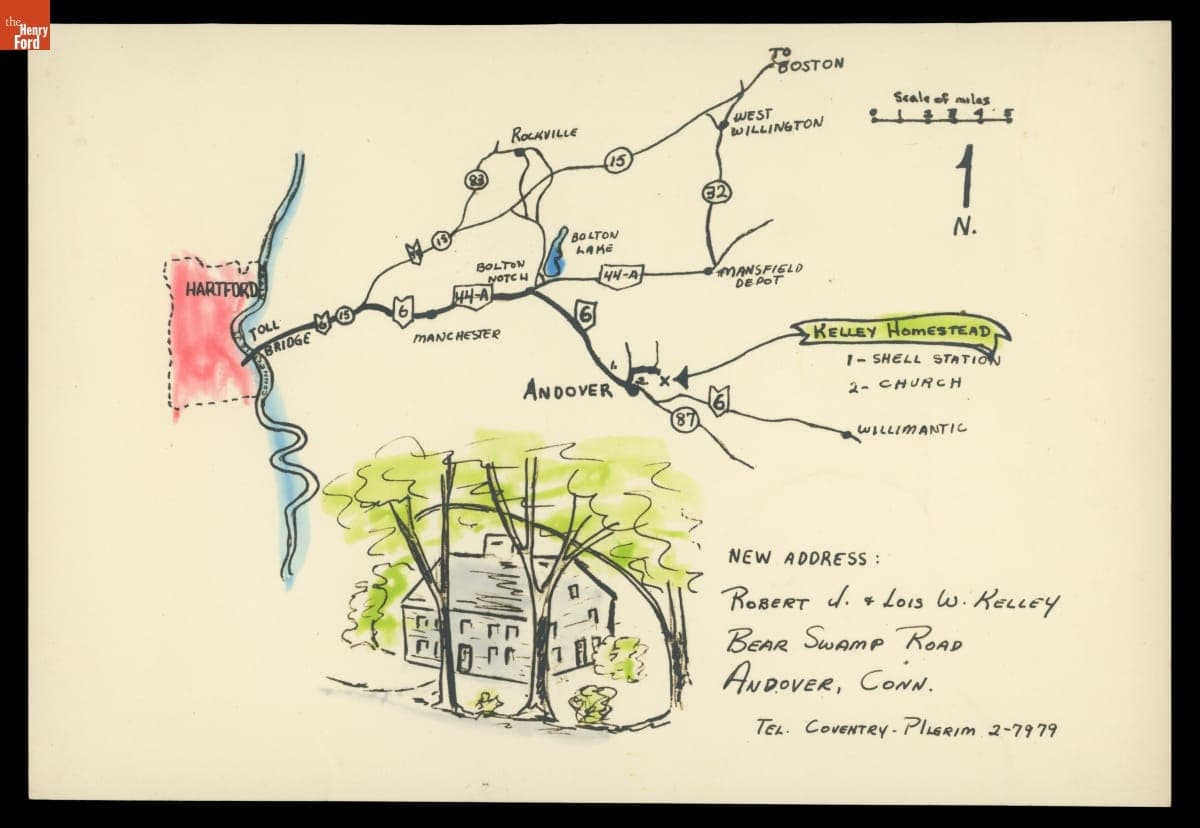 the
Henry
Ford
TO
BOSTON
Scale of miles
0 1 2 3 4 5
WEST
WILLINGTON
ROCKVILLE
15
83
32
N.
15
BOLTON
LAKE
BOLTON
NOTCH
44-A
MANSFIELD
DEPOT
HARTFORD
44-A
TOLL
BRIDGE
6
15
6
MANCHESTER
6
KELLEY HOMESTEAD
1- SHELL STATION
2- CHURCH
1
2
X
ANDOVER
6
87
WILLIMANTIC
NEW ADDRESS:
ROBERT J. & LOIS W. KELLEY
BEAR SWAMP ROAD
ANDOVER, CONN.
TEL. COVENTRY-PILGRIM 2-7979